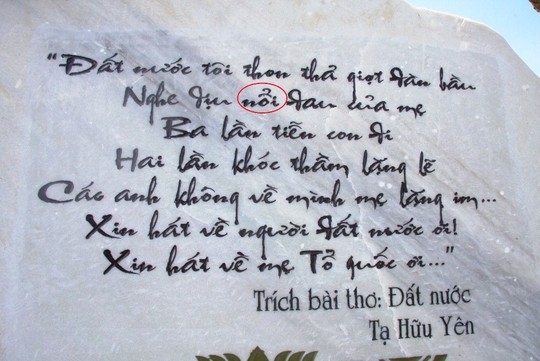 “Đất nước tôi thon thả giọt đàn bầu
Nghe dịu nổi đau của mẹ
Ba lần tiễn con đi
Hai lần khóc thầm lặng lẽ
Các anh không về mình mẹ lặng im...
Xin hát về người đất nước ơi!
Xin hát về mẹ Tổ quốc ơi...”
Trích bài thơ: Đất nước
Tạ Hữu Yên